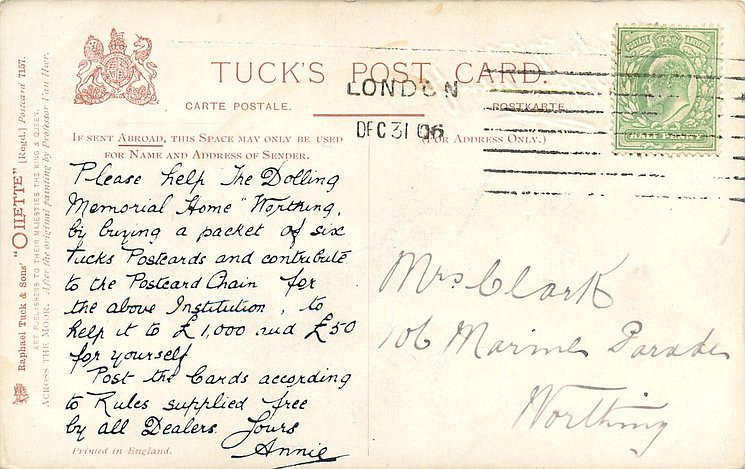 TUCK'S POST CARD.
CARTE POSTALE.
POSTKARTE
LONDON
DEC 31 06
HALFPENNY
IF SENT ABROAD, THIS SPACE MAY ONLY BE USED
FOR NAME AND ADDRESS OF SENDER.
(FOR ADDRESS ONLY.)
Please help The Dolling
Memorial Home" Worthing,
by buying a packet of six
Tucks Postcards and contribute
to the Postcard Chain for
the above Institution, to
help it to £1,000 and £50
for yourself
Post the Cards according
to Rules supplied free
by all Dealers Yours
Annie
Printed in England.
Mrs Clark
106 Marine Parade
Worthing
Raphael Tuck & Sons' "OILETTE" [Regd.] Postcard 7157.
ART PUBLISHERS TO THEIR MAJESTIES THE KING & QUEEN.
ACROSS THE MOOR. After the original painting by Professor Van Hier.